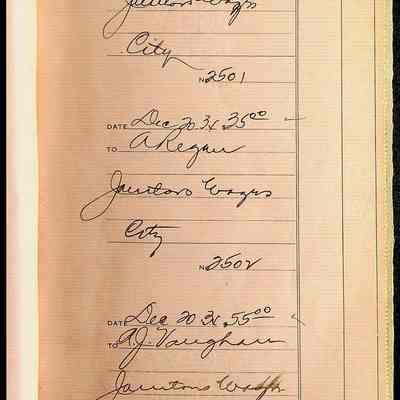 Janitors Wages
City
No 2501
DATE Dec 20 34 35 00
TO A Regan
Janitors Wages
City
No 2502
DATE Dec 20 34 55 00
TO A.J. Vaughan
Janitors Wages